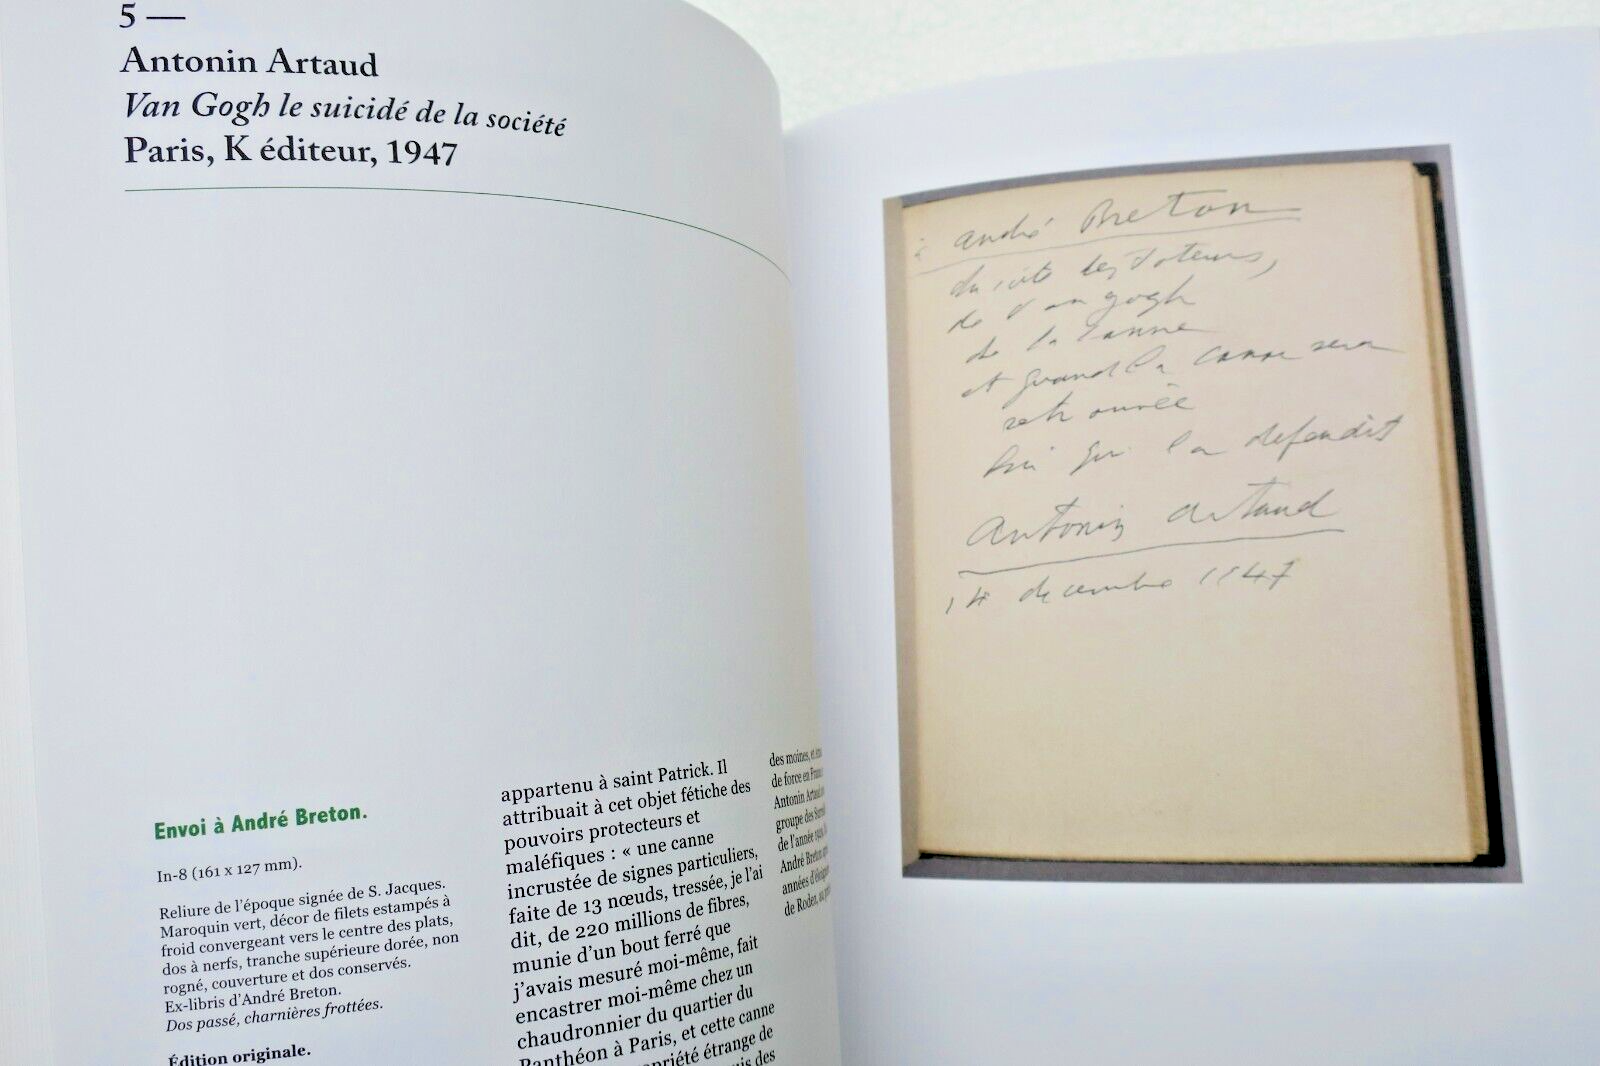 5 —
Antonin Artaud
Van Gogh le suicidé de la société
Paris, K éditeur, 1947
Envoi à André Breton.
In-8 (161 x 127 mm).
Reliure de l'époque signée de S. Jacques.
Maroquin vert, décor de filets estampés à
froid convergeant vers le centre des plats,
dos à nerfs, tranche supérieure dorée, non
rogné, couverture et dos conservés.
Ex-libris d'André Breton.
Dos passé, charnières frottées.
Édition originale.
appartenu à saint Patrick. Il
attribuait à cet objet fétiche des
pouvoirs protecteurs et
maléfiques : « une canne
incrustée de signes particuliers,
faite de 13 nœuds, tressée, je l'ai
dit, de 220 millions de fibres,
munie d'un bout ferré que
j'avais mesuré moi-même, fait
encastrer moi-même chez un
chaudronnier du quartier du
Panthéon à Paris, et cette canne
étrange de
des
des moines, et
de force en
Antonin
groupe des
de l'année
André Breton
années
de Rodez, au
à André Breton
du côté des
de van gogh
de la canne
et quand la canne sera
retrouvée
lui qui la défendit
Antonin Artaud
14 decembre 1947